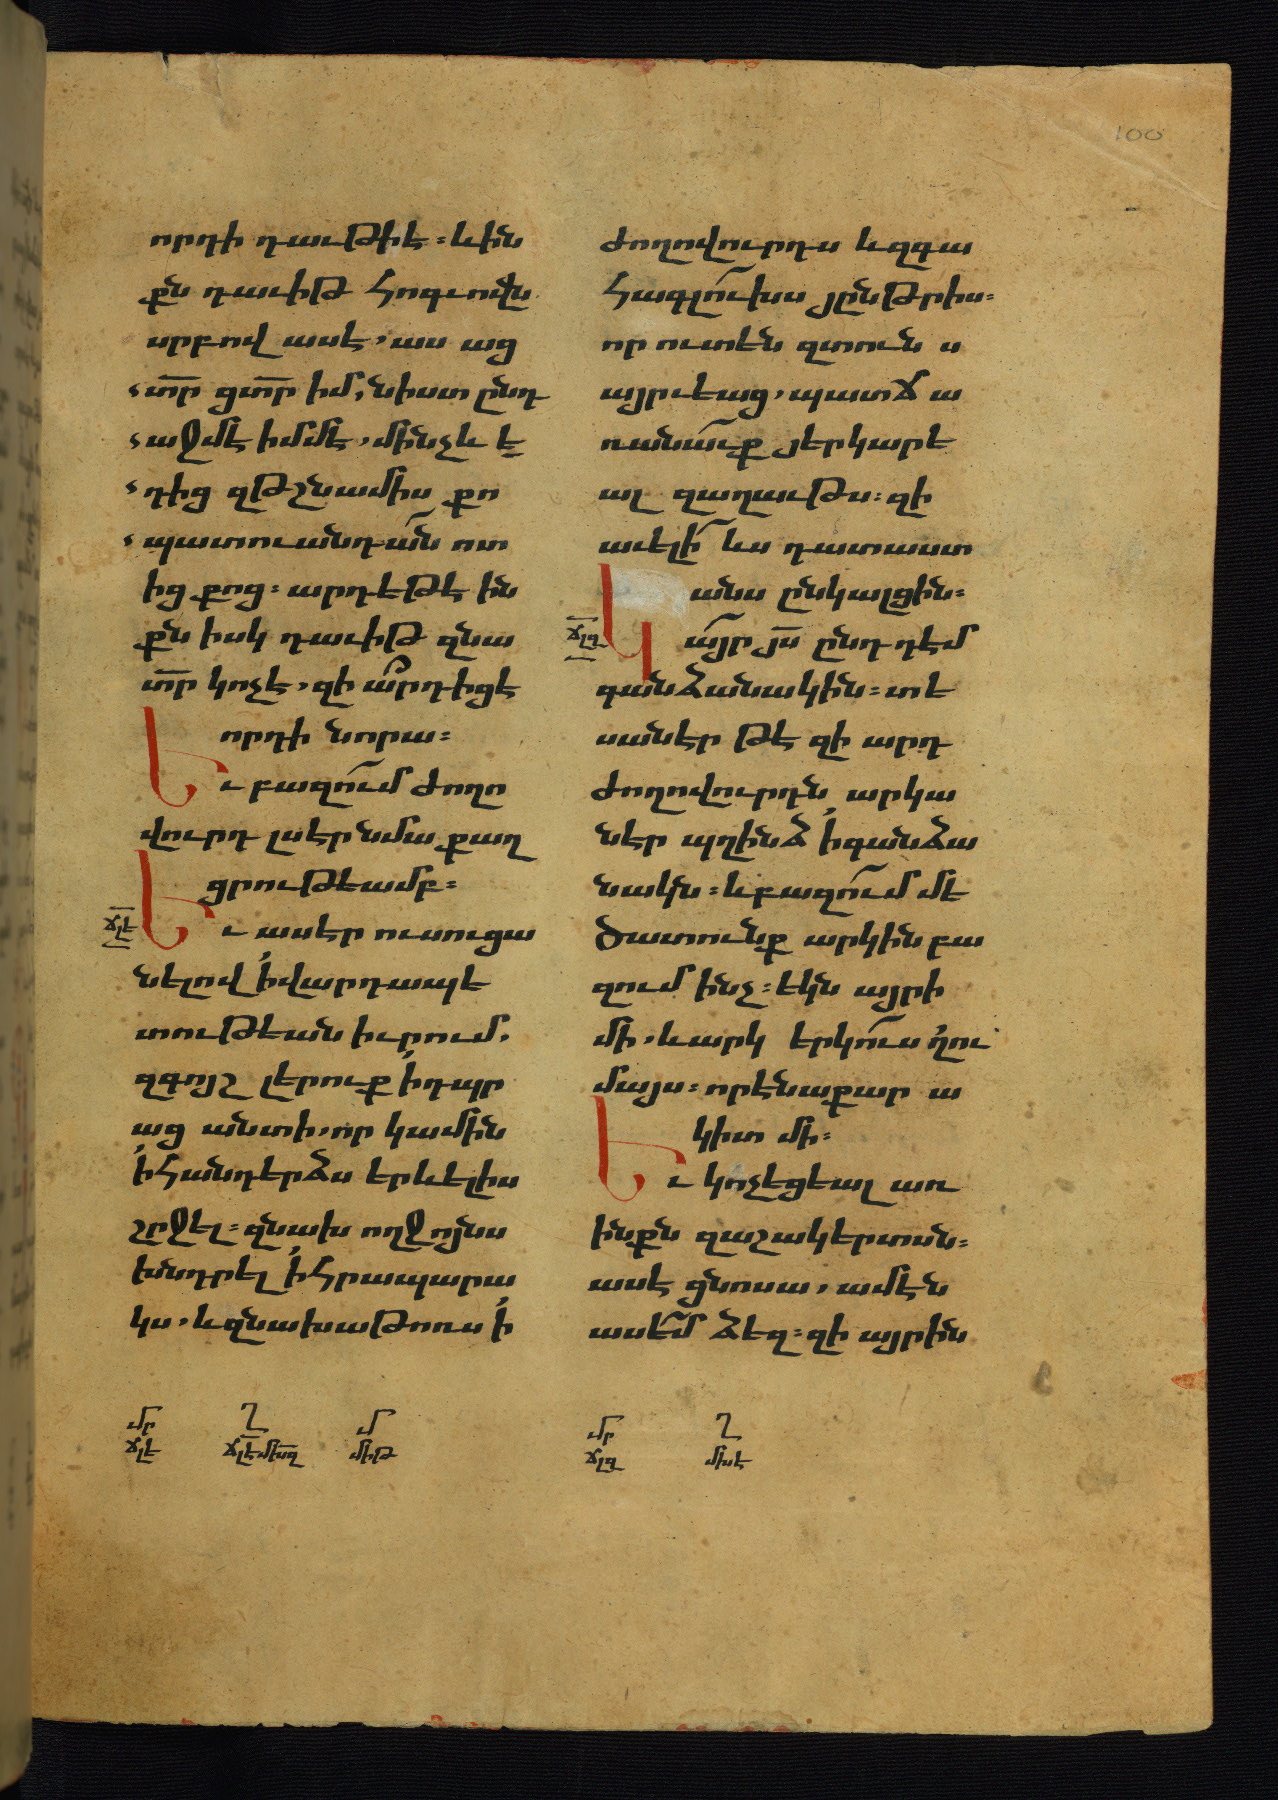 100
որդի դաւթի է։ և ին
քն դաւիթ հոգւովն
սրբով ասէ, աս աց
տ՟ր ցտ՟ր իմ, նիստ ընդ
աջմէ իմմէ, մինչև ե
դից զթշնամիս քո
պատուանդան ոտ
ից քոց։ արդ եթէ ին
քն իսկ դաւիթ զնա
տ՟ր կոչէ, զի ա՞րդ իցէ
որդի նորա։
Եւ բազում ժողո
վուրդ լսէր նմա քաղ
ցրութեամբ։
ճլե
Եւ ասէր ուսուցա
նելով ի վարդապե
տութեան իւրում,
զգոյշ լերուք ի դպր
աց անտի, որ կամին
ի հանդերձս երևելիս
շրջել։ զնախ ողջոյնս
խնդրել ի հրապարա
կս, և զնախաթոռս ի
ժողովուրդս և զգա
հագլուխս յընթրիս։
որ ուտեն զտուն ս
այրւեաց, պատճ ա
ռանաւք յերկարե
ալ զաղաւթս։ զի
աւելի ևս դատաստ
անս ընկալցին։
ճլզ
Կայր յս՟ ընդդէմ
գանձանակին։ տե
սանէր թէ զի արդ
ժողովուրդն արկա
նէր պղինձ ի գանձա
նակն։ և բազում մե
ծատունք արկին բա
զում ինչ։ եկն այրի
մի, և արկ երկուս լու
մայս։ որ է նաքար ա
կիտ մի։
Եւ կոչեցեալ առ
ինքն զաշակերտսն։
ասէ ցնոսա, ամէն
ասեմ ձեզ։ զի այրին
մր Ղ մ
ճլե ճլե մխզ մխթ
մր Ղ
ճլզ մխէ